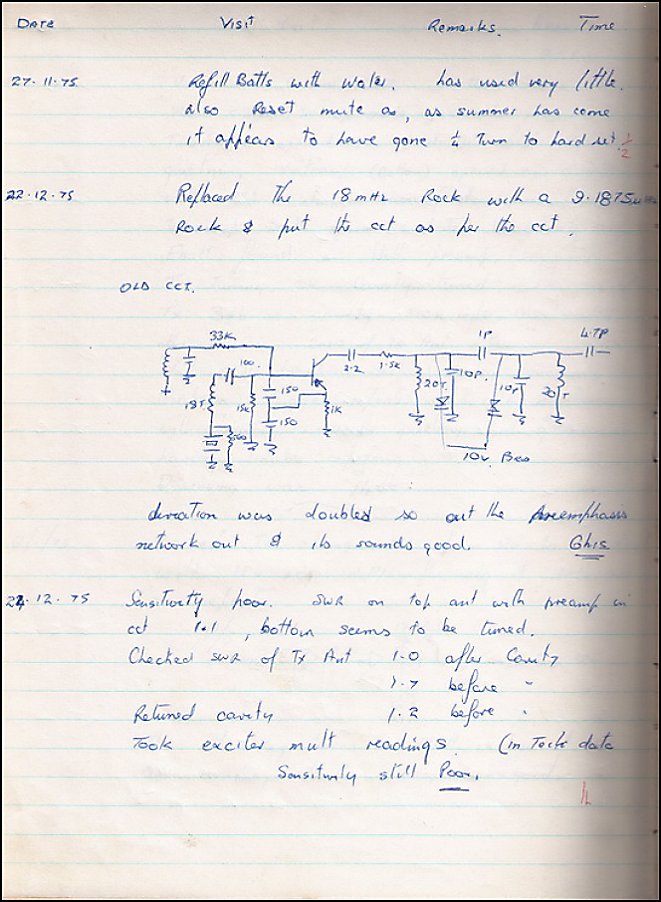 DATE Visit Remarks. Time
27.11.75 Refill Batts with water. has used very little.
also Reset mute as, as summer has come
it appears to have gone ¼ Turn to hard set. ½
22.12.75 Replaced The 18 mHz Rock with a 9.1875 mHz
Rock & put the cct as per the cct.
OLD CCT.
33K 1P 4.7P
100 2.2 1.5K
18T 15K 150 20T 10P. 10P 20T
150 1K
560
10v.
deviation was doubled so cut the Preemphasis
network out & its sounds good. Ghis
22.12.75 Sensitivity poor. SWR on top ant with preamp in
cct 1.1, bottom seems to be tuned.
Checked SWR of Tx Ant 1.0 after Cavity
1.7 before "
Retuned cavity 1.2 before "
Took exciter mult readings. (in Tech data
Sensitivity still Poor.